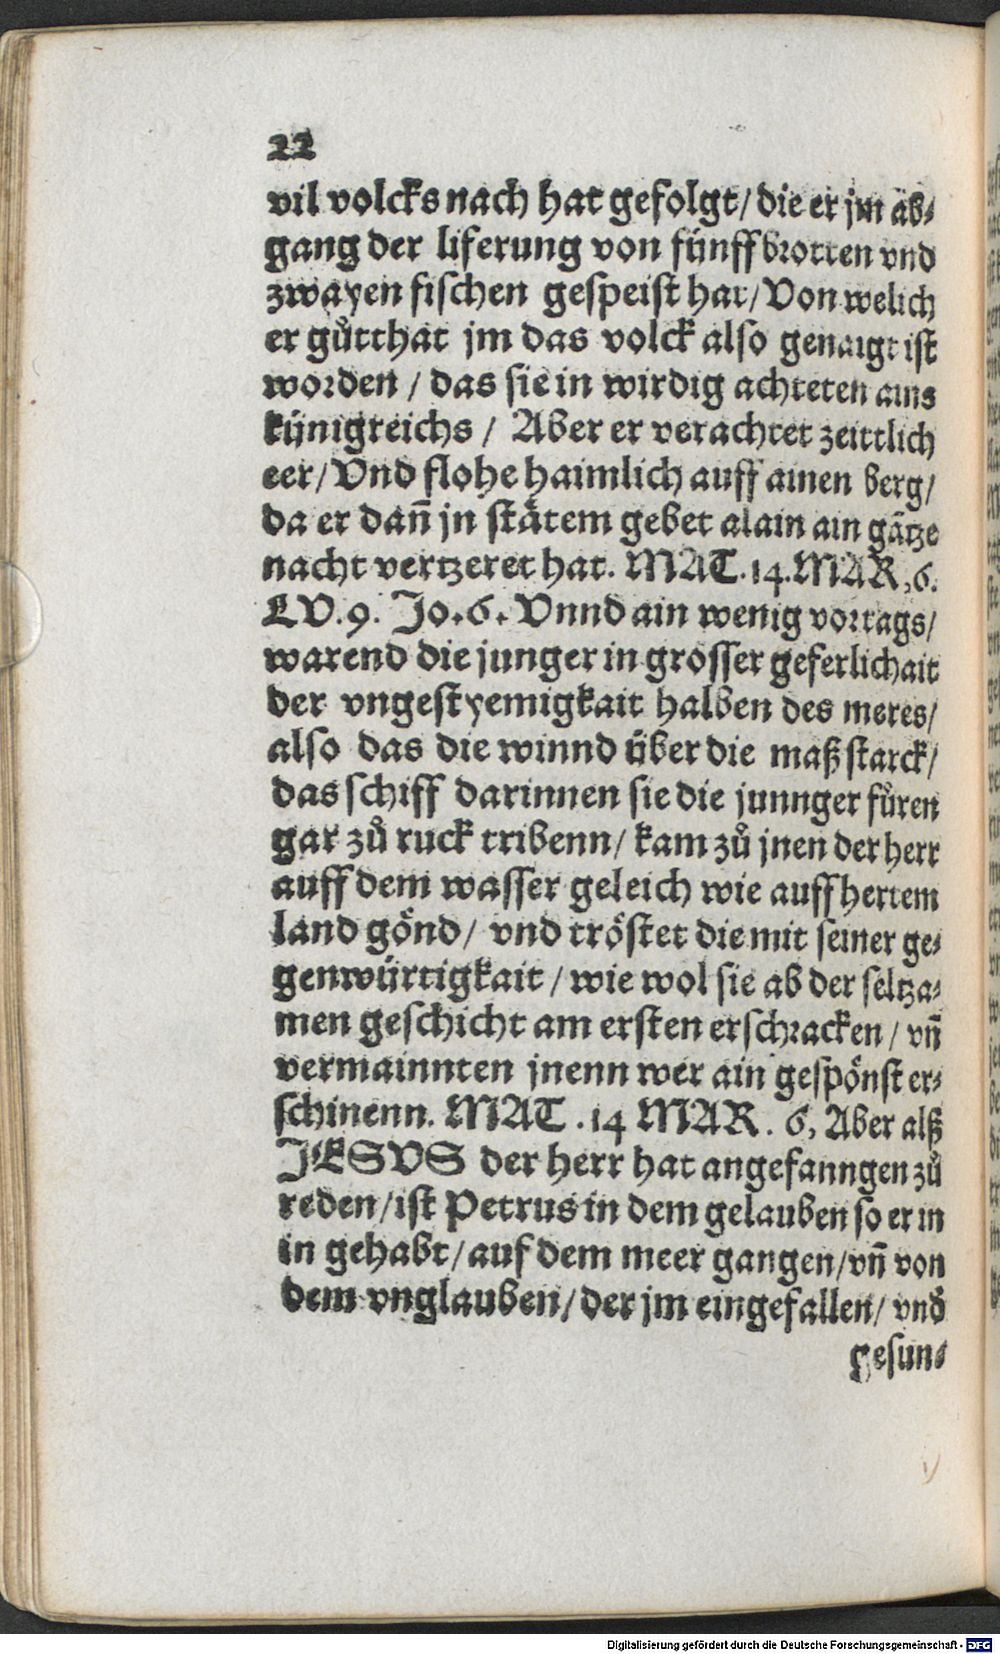 22
vil volcks nach hat gefolgt/ die er jm ab⸗
gang der liferung von fünff brotten vnd
zwayen fischen gespeist hat/ Von welich
er gůtthat jm das volck also genaigt ist
worden / das sie in wirdig achteten ains
künigreichs / Aber er verachtet zeittlich
eer/ Vnd flohe haimlich auff ainen berg/
da er dañ jn stätem gebet alain ain gätze
nacht vertzeret hat. MAT. 14. MAR, 6.
LV. 9. Jo. 6. Vnnd ain wenig vor tags/
warend die junger in grosser geferlichait
der vngestyemigkait halben des meres/
also das die winnd über die maß starck/
das schiff darinnen sie die junnger fůren
gar zů ruck tribenn/ kam zů jnen der herr
auff dem wasser geleich wie auff hertem
land gönd/ vnd tröstet die mit seiner ge⸗
genwürtigkait / wie wol sie ab der seltza⸗
men geschicht am ersten erschracken / vñ
vermainnten jnenn wer ain gespönst er⸗
schinenn. MAT . 14 MAR. 6, Aber alß
JESVS der herr hat angefanngen zů
reden/ ist Petrus in dem gelauben so er in
in gehabt/ auf dem meer gangen/ vñ von
dem vnglauben/ der jm eingefallen/ vnd
gesun⸗
Digitalisierung gefördert durch die Deutsche Forschungsgemeinschaft - DFG